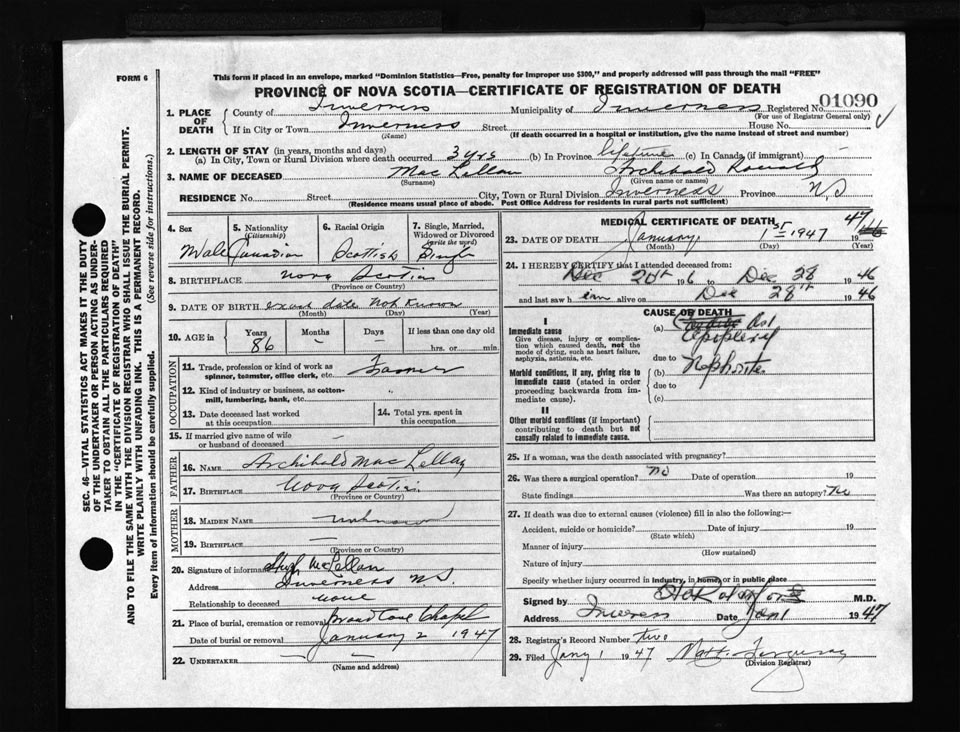 FORM 6
This form if placed in an envelope, marked "Dominion Statistics—Free, penalty for improper use $300," and properly addressed will pass through the mail "FREE"
PROVINCE OF NOVA SCOTIA—CERTIFICATE OF REGISTRATION OF DEATH
1. PLACE OF DEATH
County of Inverness Municipality of Inverness Registered No. 01090
(For use of Registrar General only)
If in City or Town Inverness Street House No.
(Name) (If death occurred in a hospital or institution, give the name instead of street and number)
2. LENGTH OF STAY (in years, months and days)
(a) In City, Town or Rural Division where death occurred 3 yrs (b) In Province lifetime (c) In Canada (if immigrant) —
3. NAME OF DECEASED Mac Lellan Archibald Ronald
(Surname) (Given name or names)
RESIDENCE No. Street City, Town or Rural Division Inverness Province N.S
(Residence means usual place of abode. Post Office Address for residents in rural parts not sufficient)
4. Sex
Male
5. Nationality
(Citizenship)
Canadian
6. Racial Origin
Scottish
7. Single, Married, Widowed or Divorced
(write the word)
Single
8. BIRTHPLACE Nova Scotia
(Province or Country)
9. DATE OF BIRTH exact date Not Known
(Month) (Day) (Year)
10. AGE in Years Months Days If less than one day old
86 — — hrs. or min.
OCCUPATION
11. Trade, profession or kind of work as spinner, teamster, office clerk, etc. Farmer
12. Kind of industry or business, as cotton-mill, lumbering, bank, etc.
13. Date deceased last worked at this occupation
14. Total yrs. spent in this occupation
15. If married give name of wife or husband of deceased —
FATHER
16. NAME Archibald Mac Lellan
17. BIRTHPLACE Nova Scotia
(Province or Country)
MOTHER
18. MAIDEN NAME unknown
19. BIRTHPLACE —
(Province or Country)
20. Signature of informant Hugh McLellan
Address Inverness N.S.
Relationship to deceased none
21. Place of burial, cremation or removal Broad Cove Chapel
Date of burial or removal January 2 1947
22. UNDERTAKER — —
(Name and address)
MEDICAL CERTIFICATE OF DEATH
23. DATE OF DEATH January 1st 1947 19 47
(Month) (Day) (Year)
24. I HEREBY CERTIFY that I attended deceased from:
Dec 20th to Dec 28 19 46
and last saw h im alive on Dec 28th 19 46
CAUSE OF DEATH
I
Immediate cause
Give disease, injury or complication which caused death, not the mode of dying, such as heart failure, asphyxia, asthenia, etc.
(a)
Apoplexy
due to
Morbid conditions, if any, giving rise to immediate cause (stated in order proceeding backwards from immediate cause).
(b) Nephritis
due to
(c)
II
Other morbid conditions (if important) contributing to death but not causally related to immediate cause.
25. If a woman, was the death associated with pregnancy?
26. Was there a surgical operation? No Date of operation 19
State findings Was there an autopsy? No
27. If death was due to external causes (violence) fill in also the following:—
Accident, suicide or homicide? Date of injury 19
(State which)
Manner of injury
(How sustained)
Nature of injury
Specify whether injury occurred in industry, in home, or in public place
Signed by M.D.
Address Inverness Date Jan 1 19 47
28. Registrar's Record Number two
29. Filed Jany 1 19 47 Matt. Ferguson
(Division Registrar)
SEC. 46—VITAL STATISTICS ACT MAKES IT THE DUTY
OF THE UNDERTAKER OR PERSON ACTING AS UNDER-
TAKER TO OBTAIN ALL THE PARTICULARS REQUIRED
IN THE "CERTIFICATE OF REGISTRATION OF DEATH"
AND TO FILE THE SAME WITH THE DIVISION REGISTRAR WHO SHALL ISSUE THE BURIAL PERMIT.
WRITE PLAINLY WITH UNFADING INK. THIS IS A PERMANENT RECORD.
Every item of information should be carefully supplied. (See reverse side for instructions.)